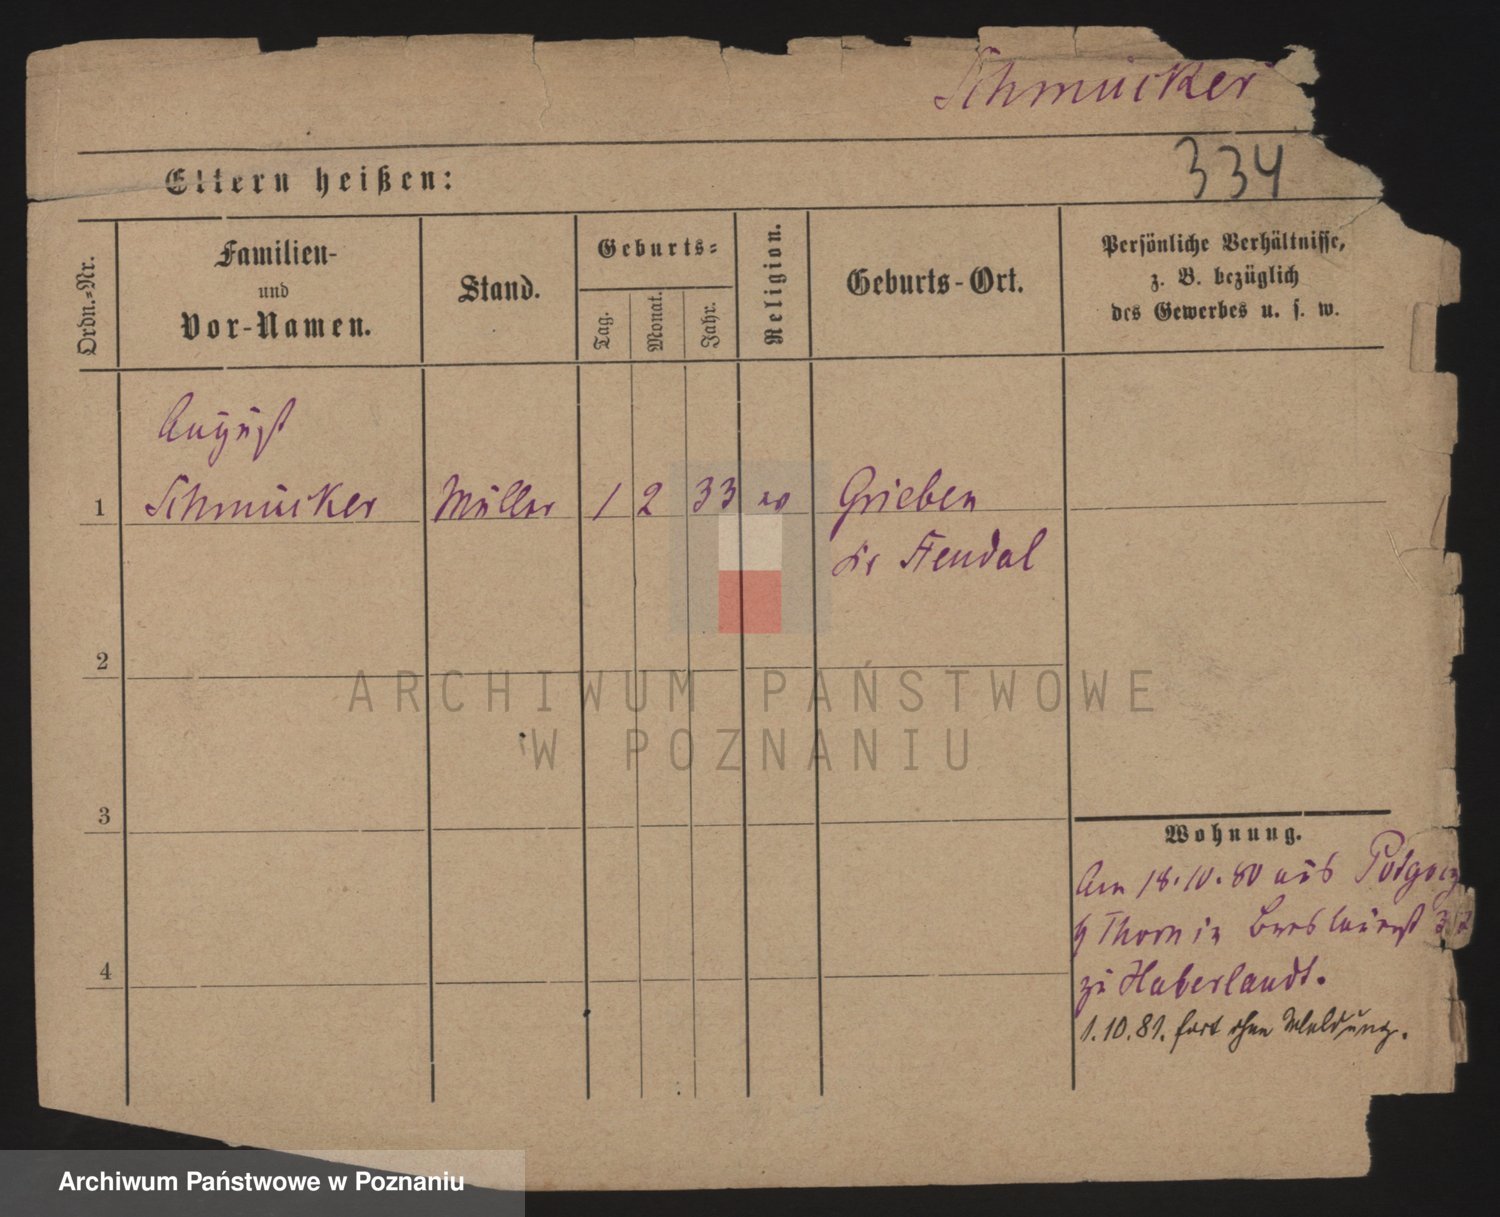 Schmücker
334
Eltern heißen:
Ordn.-Nr.
Familien-
und
Vor-Namen.
Stand.
Geburts-
Tag.
Monat.
Jahr.
Religion.
Geburts-Ort.
Persönliche Verhältnisse,
z. B. bezüglich
des Gewerbes u. s. w.
August
1 Schmücker Müller 1 2 33 ev Grieben
Kr Stendal
2
3
4
Wohnung.
Am 18.10.80 aus
Thorn in
zu Haberlandt.
1.10.81. fort ohne Meldung.
ARCHIWUM PAŃSTWOWE
W POZNANIU
Archiwum Państwowe w Poznaniu